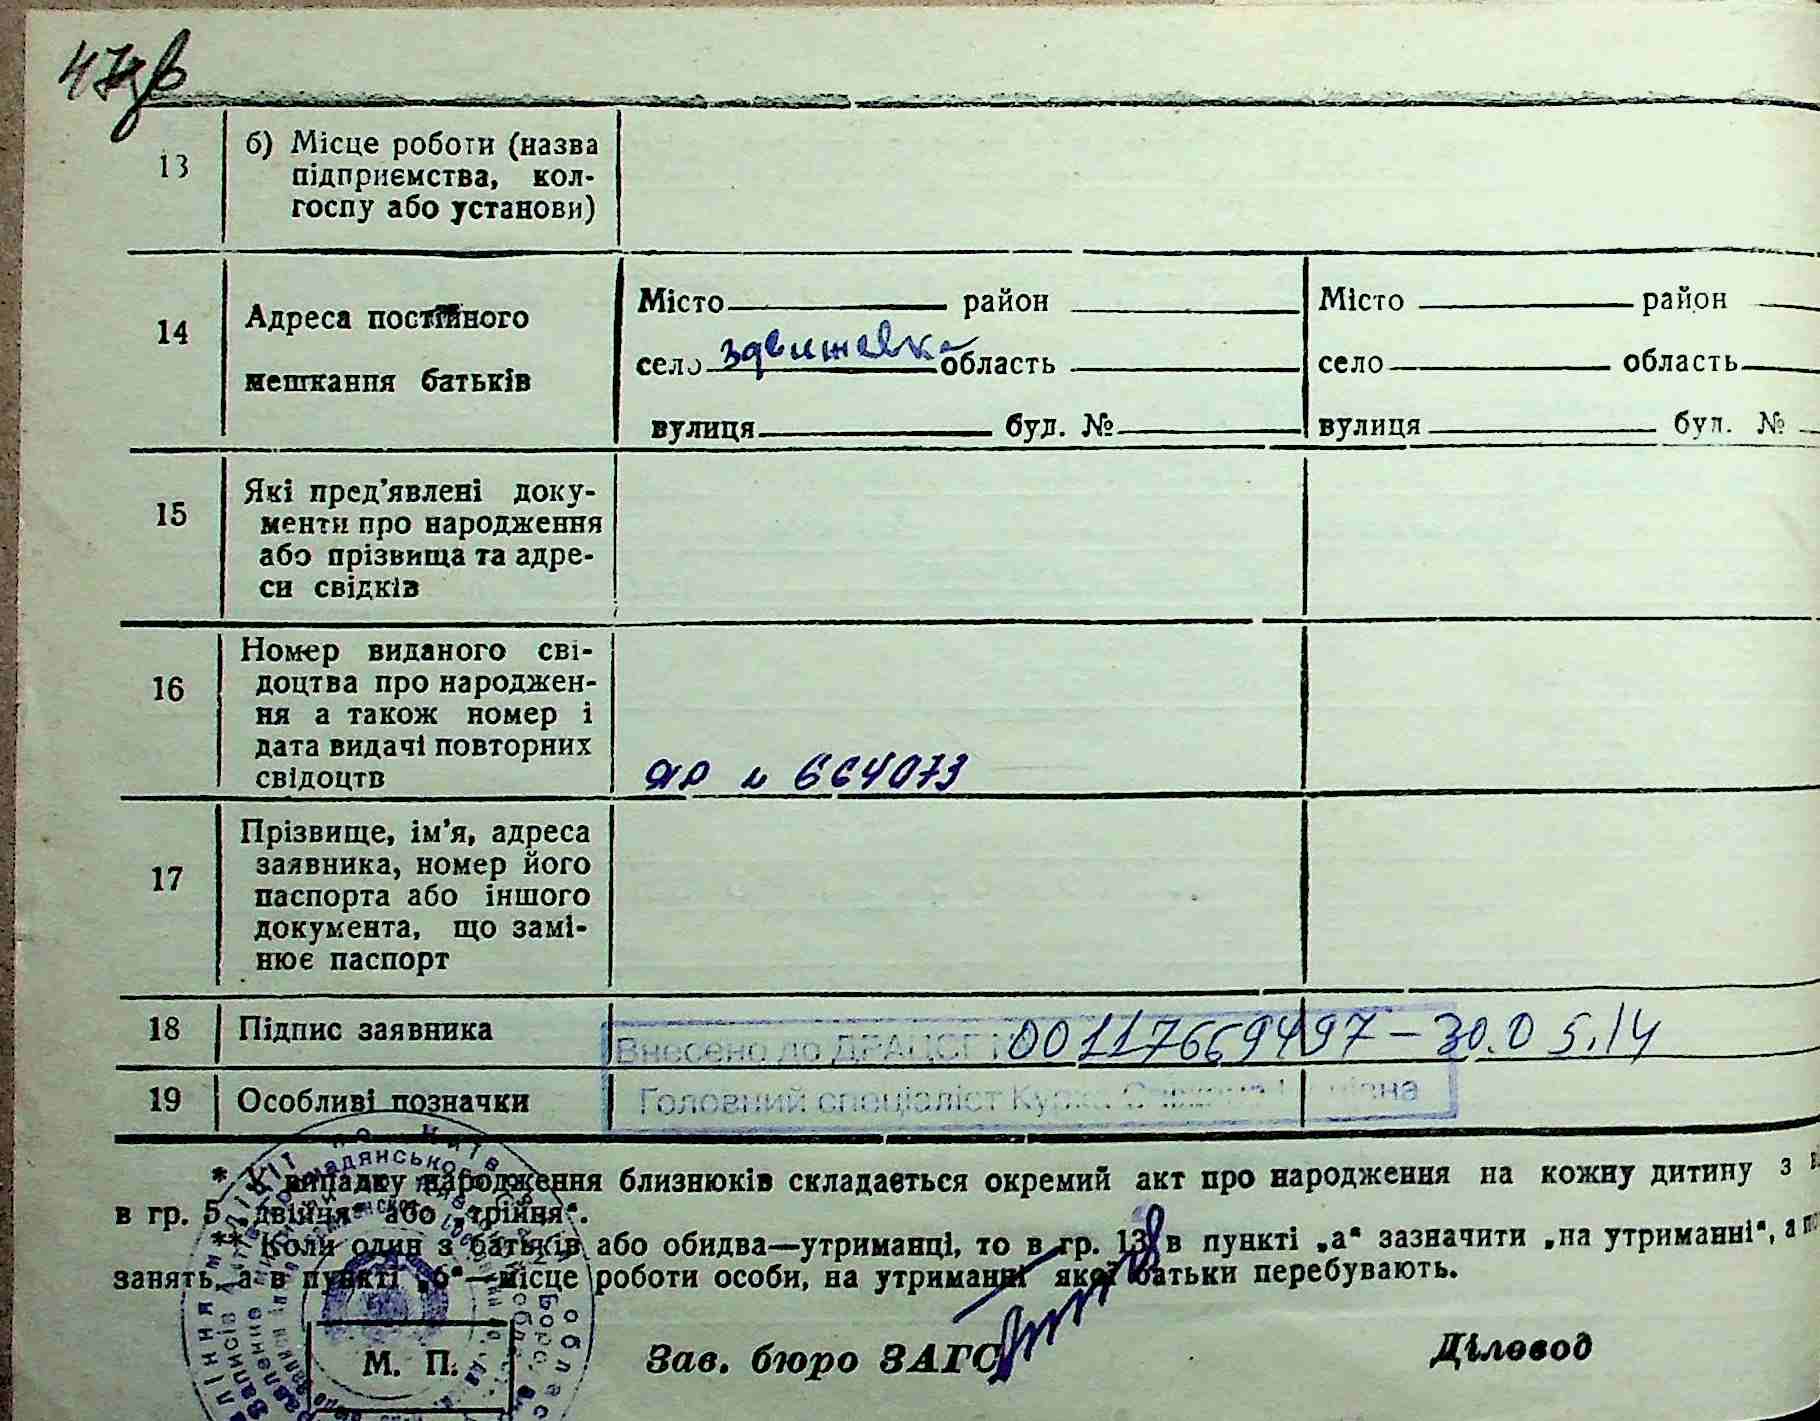 47зв
13
б) Місце роботи (назва
підприємства, кол-
госпу або установи)
14
Адреса постійного
мешкання батьків
Місто район
село Здвижевка область
вулиця буд. №
Місто район
село область
вулиця буд. №
15
Які пред'явлені доку-
менти про народження
або прізвища та адре-
си свідків
16
Номер виданого сві-
доцтва про народжен-
ня а також номер і
дата видачі повторних
свідоцтв
ЯР № 664073
17
Прізвище, ім'я, адреса
заявника, номер його
паспорта або іншого
документа, що замі-
нює паспорт
18
Підпис заявника
Внесено до ДРАЦСГ 00117669497 – 30.05.14
19
Особливі позначки
Головний спеціаліст
* У випадку народження близнюків складається окремий акт про народження на кожну дитину з
в гр. 5 „двійня" або „трійня".
** Коли один з батьків або обидва—утриманці, то в гр. 13 в пункті „а" зазначити „на утриманні", а
занять, а в пункті „б"—місце роботи особи, на утриманні якої батьки перебувають.
М. П.
Зав. бюро ЗАГС
Діловод